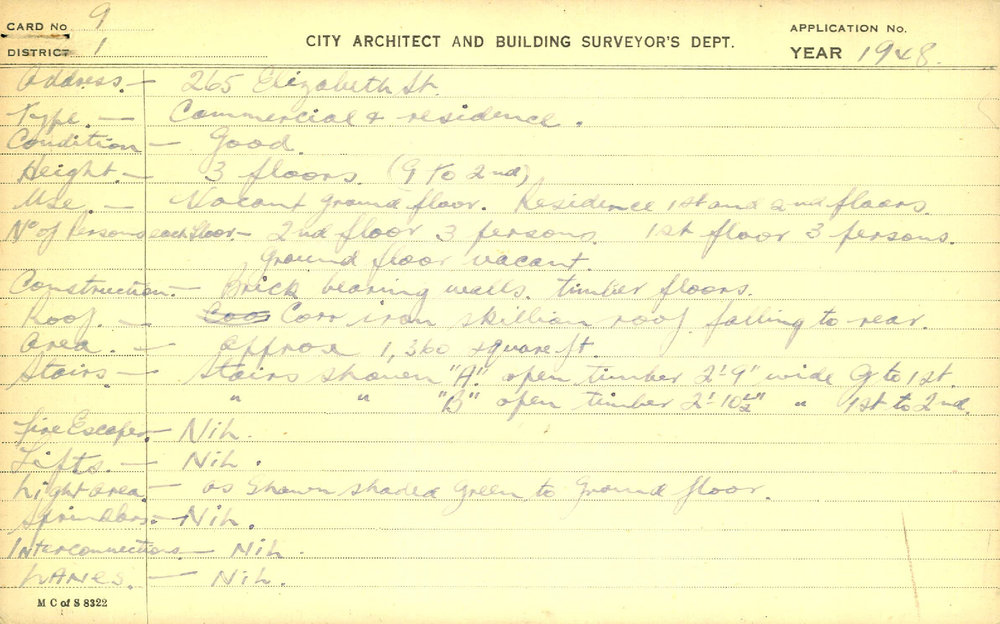 CARD No 9
DISTRICT 1
CITY ARCHITECT AND BUILDING SURVEYOR'S DEPT.
APPLICATION No.
YEAR 1948.
Address. — 265 Elizabeth St.
Type. — Commercial & residence.
Condition — Good.
Height. — 3 floors. (G to 2nd)
Use. — Vacant ground floor. Residence 1st and 2nd floors.
No of Persons each floor — 2nd floor 3 persons. 1st floor 3 persons.
Ground floor vacant.
Construction. — Brick bearing walls. timber floors.
Roof. — Corr iron skillion roof falling to rear.
Area. — approx 1,360 square ft.
Stairs — Stairs shown "A". open timber 2'9" wide G to 1st.
" " "B" open timber 2'10½" " 1st to 2nd.
Fire Escapes — Nil.
Lifts. — Nil.
Light area — as shown shaded green to ground floor.
Sprinklers. — Nil.
Interconnections — Nil.
LANES. — Nil.
M C of S 8322